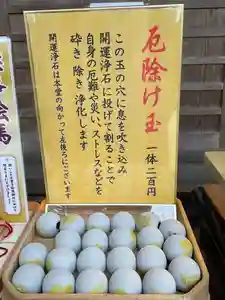 厄除け玉
一体二百円
この玉の穴に息を吹き込み
開運浄石に投げて割ることで
自身の厄難や災い、ストレスなどを
砕き 除き 浄化します
開運浄石は本堂の向かって左後ろにございます
絵馬